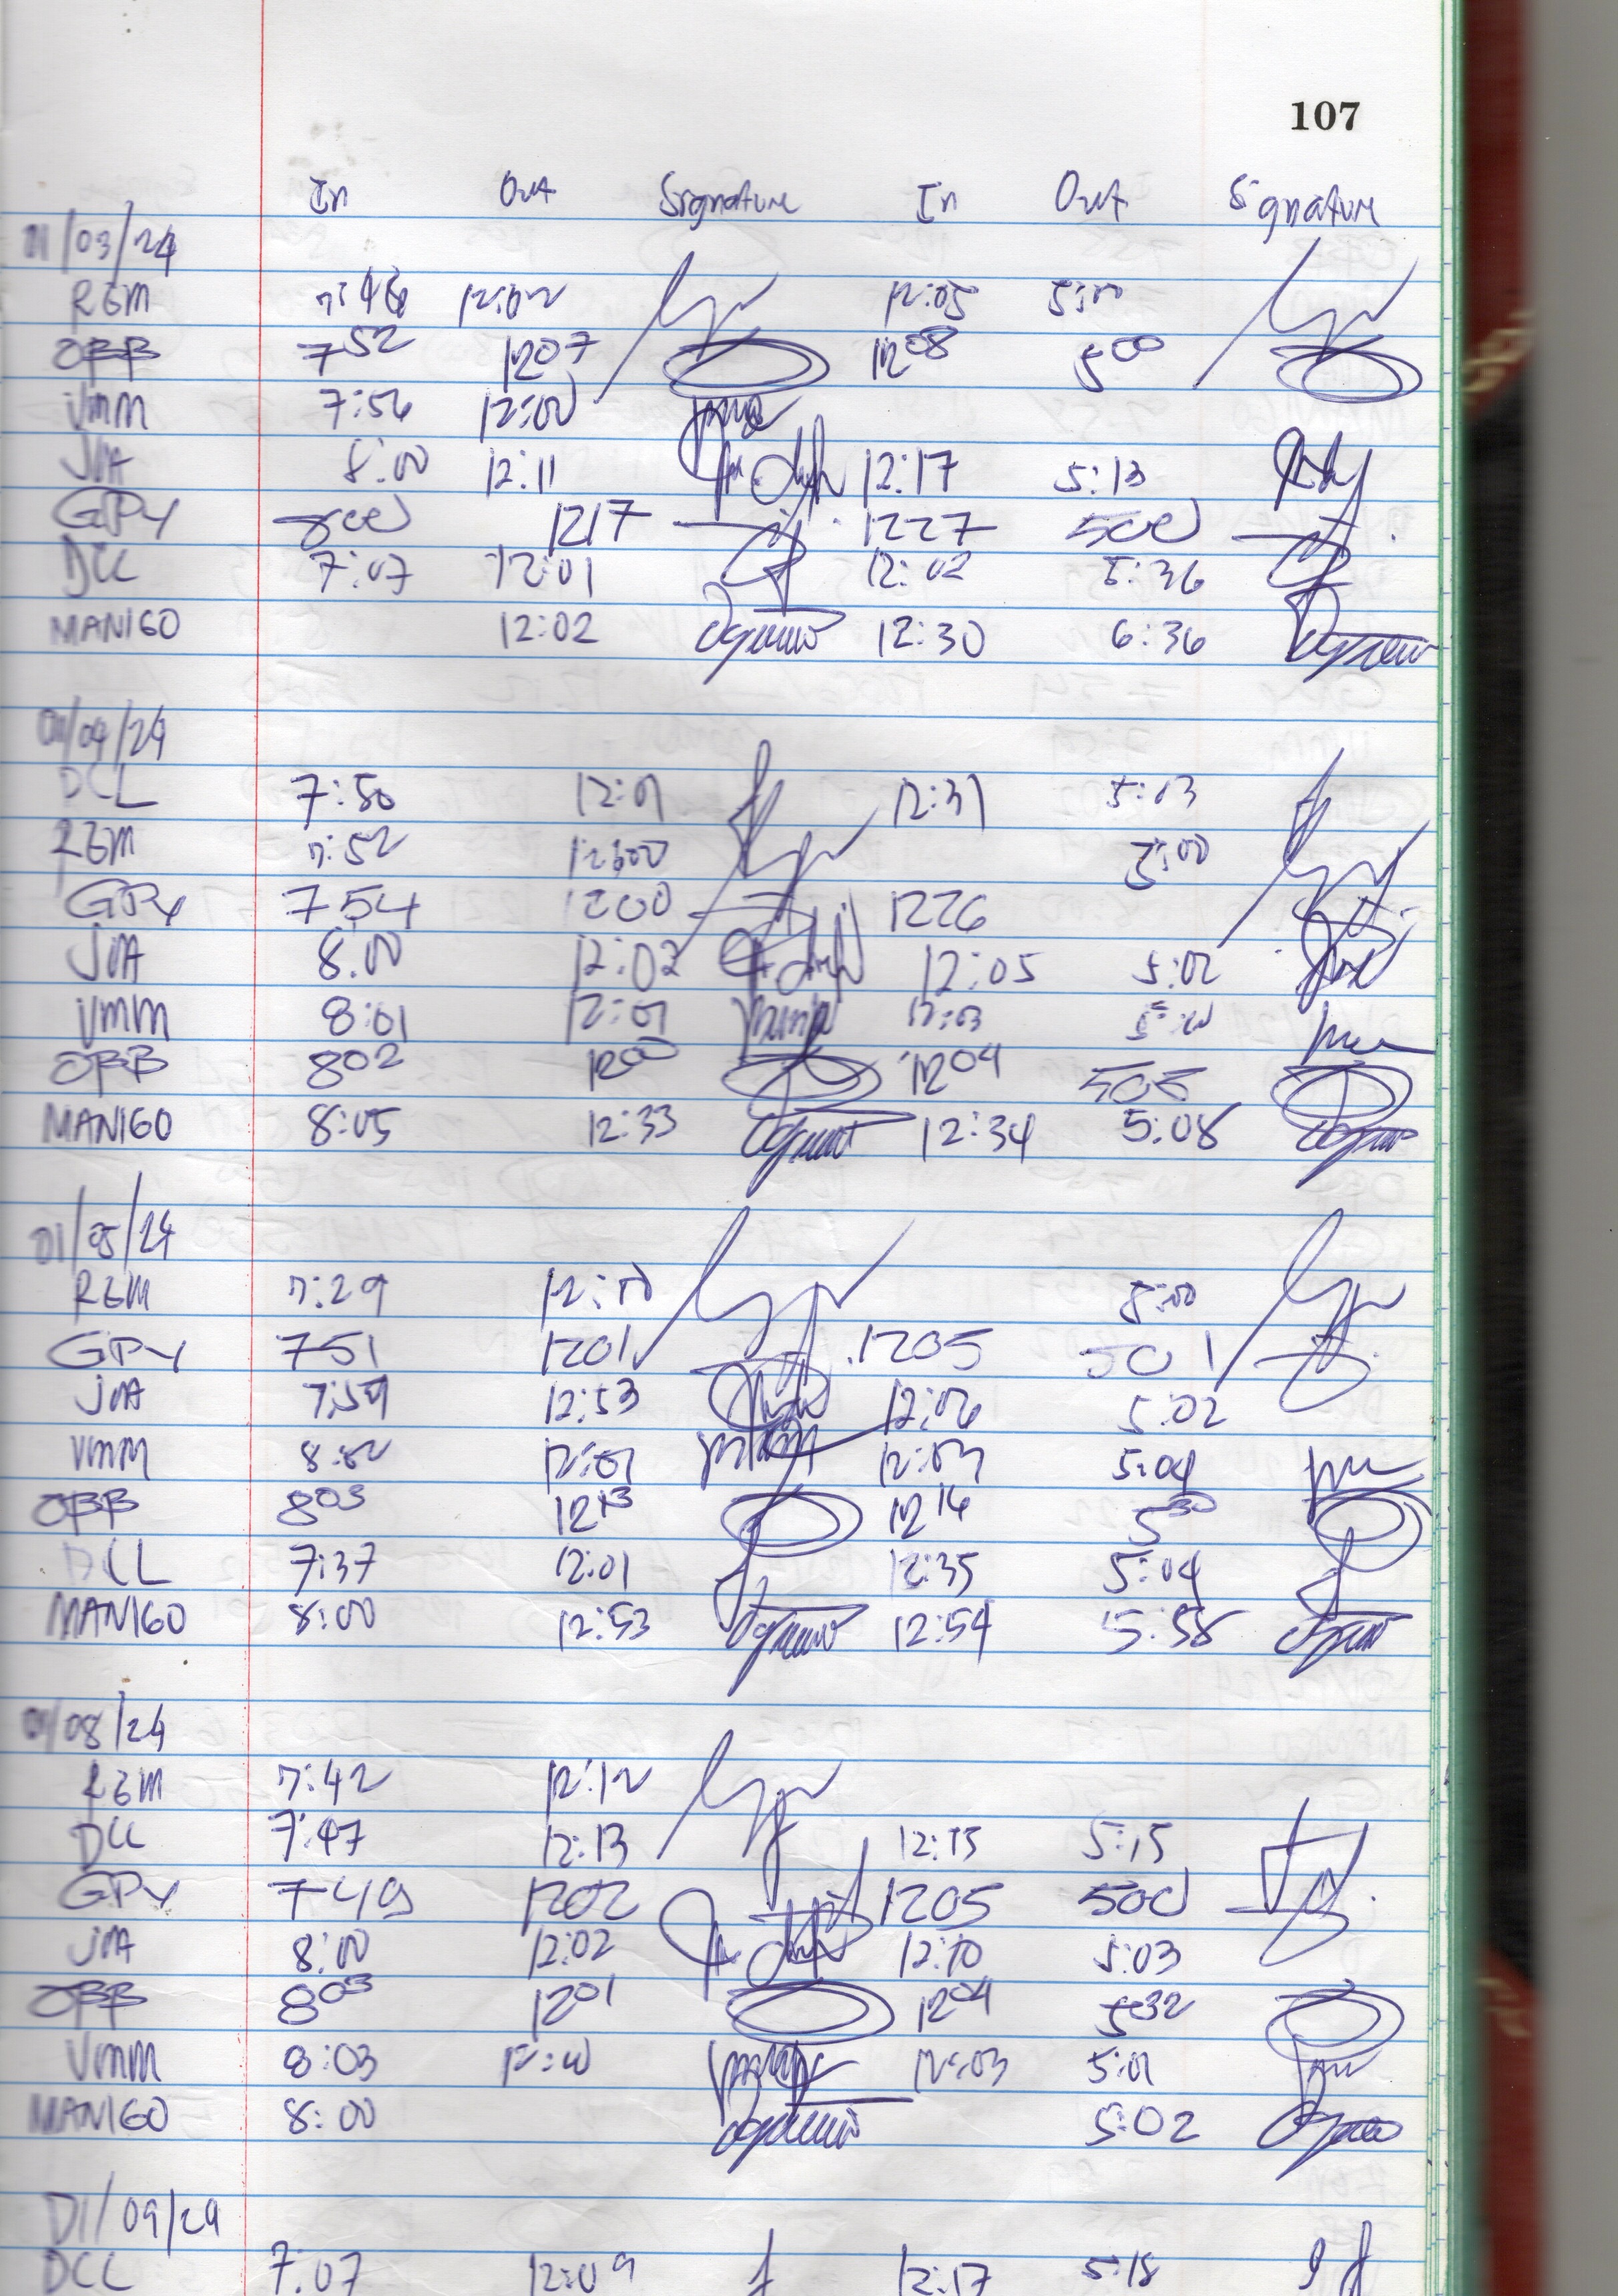 107
In Out Signature In Out Signature
01/03/24
RGM 7:46 12:02 12:05 5:00
OBB 7 52 12 07 12 08 5 00
VMM 7:56 12:00
JVA 8:00 12:11 12:17 5:13
GPY 800 1217 1227 500
DCL 7:07 12:01 12:02 5:36
MANIGO 12:02 12:30 6:36
01/04/24
DCL 7:50 12:01 12:31 5:03
RGM 7:52 12:00 5:00
GPY 754 1200 1226
JVA 8:00 12:02 12:05 5:02
VMM 8:01 12:01 12:03 5:00
OBB 8 02 12 00 12 04 505
MANIGO 8:05 12:33 12:34 5:08
01/05/24
RGM 7:29 12:00 5:00
GPY 751 1201 1205 501
JVA 7:59 12:53 12:06 5:02
VMM 8:02 12:01 12:03 5:04
OBB 8 03 12 13 12 14 5 30
DCL 7:37 12:01 12:35 5:04
MANIGO 8:00 12:53 12:54 5:58
01/08/24
RGM 7:42 12:12
DCL 7:47 12:13 12:15 5:15
GPY 749 1202 1205 500
JVA 8:00 12:02 12:10 5:03
OBB 8 03 12 01 12 04 5 32
VMM 8:03 12:00 12:03 5:01
MANIGO 8:00 5:02
01/09/24
DCL 7:07 12:09 12:17 5:18